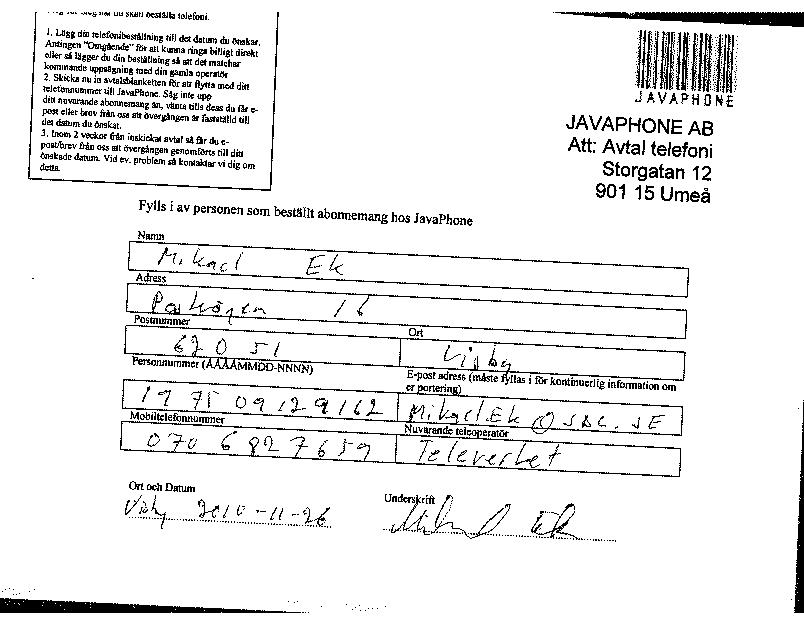 du skall beställa telefoni.
1. Lägg din telefonibeställning till det datum du önskar.
Antingen "Omgående" för att kunna ringa billigt direkt
eller så lägger du din beställning så att det matchar
kommande uppsägning med din gamla operatör
2. Skicka nu in avtalsblanketten för att flytta med ditt
telefonnummer till JavaPhone. Säg inte upp
ditt nuvarande abonnemang än, vänta tills dess du får e-
post eller brev från oss att övergången är fastställd till
det datum du önskat.
3. Inom 2 veckor från inskickat avtal så får du e-
post/brev från oss att övergången genomförts till ditt
önskade datum. Vid ev. problem så kontaktar vi dig om
detta.
JAVAPHONE
JAVAPHONE AB
Att: Avtal telefoni
Storgatan 12
901 15 Umeå
Fylls i av personen som beställt abonnemang hos JavaPhone
Namn
Mikael Ek
Adress
16
Postnummer
62051
Ort
Visby
Personnummer (ÅÅÅÅMMDD-NNNN)
197509129162
E-post adress (måste fyllas i för kontinuerlig information om
er portering)
Mikael.Ek@SBC.SE
Mobiltelefonnummer
070 6827659
Nuvarande teleoperatör
Televerket
Ort och Datum
Visby 2010-11-26
Underskrift
Mikael Ek